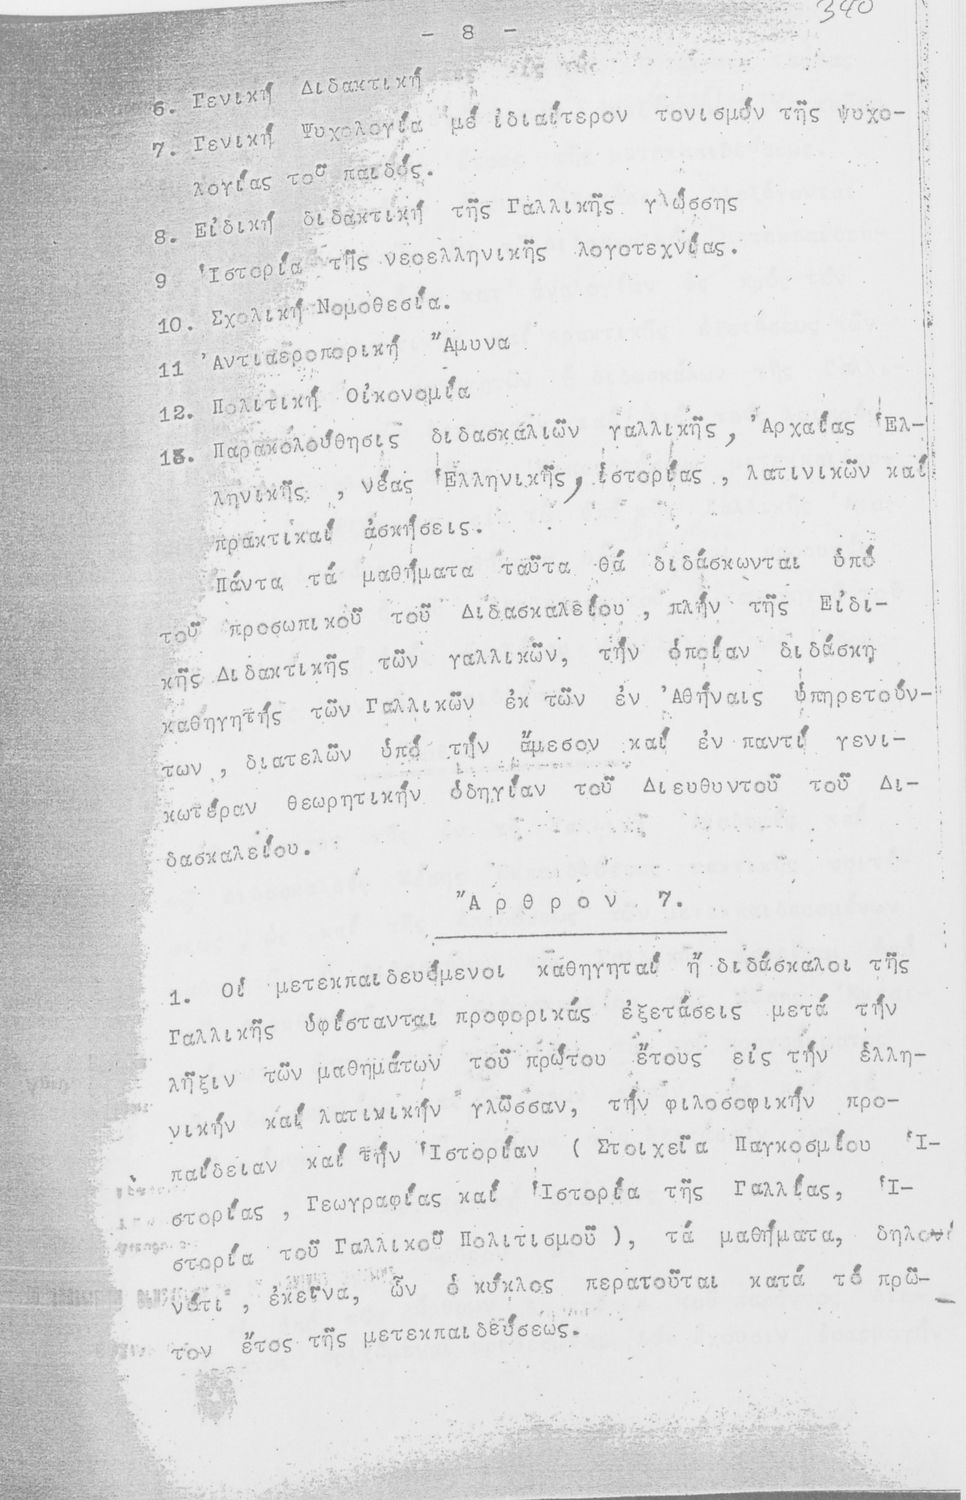 340
- 8 -
6. Γενική Διδακτική
7. Γενική Ψυχολογία μέ ἰδιαίτερον τονισμόν τῆς ψυχο-
λογίας τοῦ παιδός.
8. Εἰδική διδακτική τῆς Γαλλικῆς γλώσσης
9 Ἱστορία τῆς νεοελληνικῆς λογοτεχνίας.
10. Σχολική Νομοθεσία.
11 Ἀντιαεροπορική Ἄμυνα
12. Πολιτική Οἰκονομία
13. Παρακολούθησις διδασκαλιῶν γαλλικῆς, Ἀρχαίας Ἑλ-
ληνικῆς , νέας Ἑλληνικῆς, ἱστορίας , λατινικῶν καί
πρακτικαί ἀσκήσεις.
Πάντα τά μαθήματα ταῦτα θά διδάσκωνται ὑπό
τοῦ προσωπικοῦ τοῦ Διδασκαλείου , πλήν τῆς Εἰδι-
κῆς Διδακτικῆς τῶν γαλλικῶν, τήν ὁποίαν διδάσκη
καθηγητής τῶν Γαλλικῶν ἐκ τῶν ἐν Ἀθήναις ὑπηρετούν-
των , διατελῶν ὑπό τήν ἄμεσον καί ἐν παντί γενι-
κωτέραν θεωρητικήν ὁδηγίαν τοῦ Διευθυντοῦ τοῦ Δι-
δασκαλείου.
Ἄ ρ θ ρ ο ν 7.
1. Οἱ μετεκπαιδευόμενοι καθηγηταί ἤ διδάσκαλοι τῆς
Γαλλικῆς ὑφίστανται προφορικάς ἐξετάσεις μετά τήν
λῆξιν τῶν μαθημάτων τοῦ πρώτου ἔτους εἰς τήν ἑλλη-
νικήν καί λατινικήν γλῶσσαν, τήν φιλοσοφικήν προ-
παίδειαν καί τήν Ἱστορίαν ( Στοιχεῖα Παγκοσμίου Ἱ-
στορίας , Γεωγραφίας καί Ἱστορία τῆς Γαλλίας, Ἱ-
στορία τοῦ Γαλλικοῦ Πολιτισμοῦ ), τά μαθήματα, δηλον
νότι , ἐκεῖνα, ὧν ὁ κύκλος περατοῦται κατά τό πρῶ-
τον ἔτος τῆς μετεκπαιδεύσεως.